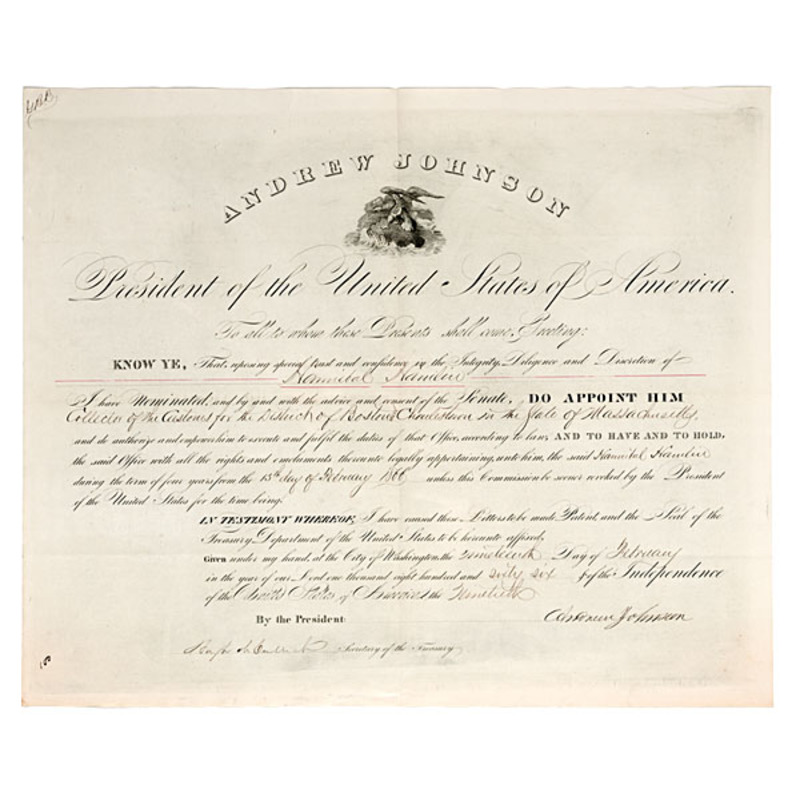 ANDREW JOHNSON
President of the United States of America.
To all to whom these Presents shall come, Greeting:
KNOW YE, That, reposing special trust and confidence in the Integrity, Diligence and Discretion of
Hannibal Hamlin
I have Nominated, and by and with the advice and consent of the Senate, DO APPOINT HIM
Collector of the Customs for the District of Boston & Charlestown in the State of Massachusetts
and do authorize and empower him to execute and fulfil the duties of that Office, according to law, AND TO HAVE AND TO HOLD,
the said Office with all the rights and emoluments thereunto legally appertaining, unto him, the said Hannibal Hamlin
during the term of four years from the 15th day of February 1866 unless this Commission be sooner revoked by the President
of the United States for the time being.
IN TESTIMONY WHEREOF, I have caused these Letters to be made Patent, and the Seal of the
Treasury Department of the United States to be hereunto affixed.
Given under my hand, at the City of Washington, the nineteenth Day of February
in the year of our Lord one thousand eight hundred and sixty six & of the Independence
of the United States of America, the Ninetieth
By the President: Andrew Johnson
Hugh McCulloch Secretary of the Treasury